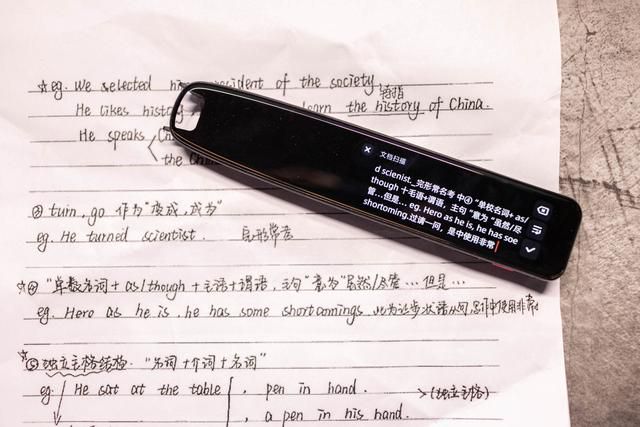 ☆eg. We selected his president of the society
特指
He likes history learn the history of China.
He speaks Ch
the Chin
文档扫描
d scienist._完形常名考 中④ "单校名词+ as/
though 十毛语+谓语，主句 "意为 "虽然/尽
管...但是... eg. Hero as he is, he has soe
shortoming.过请一问，是中使用非常
③ turn, go 作为"变成,成为"
eg. He turned scientist. 完形常考
☆④ "单数名词 + as/though + 主语 + 谓语, 主句"意为"虽然/尽管...但是...
eg. Hero as he is, he has some shortcomings 此为让步状语从句,写作中使用非常
☆⑤ 独立主格结构: "名词 + 介词 + 名词"
eg. He sat at the table , pen in hand. →(独立主格)
, a pen in his hand.